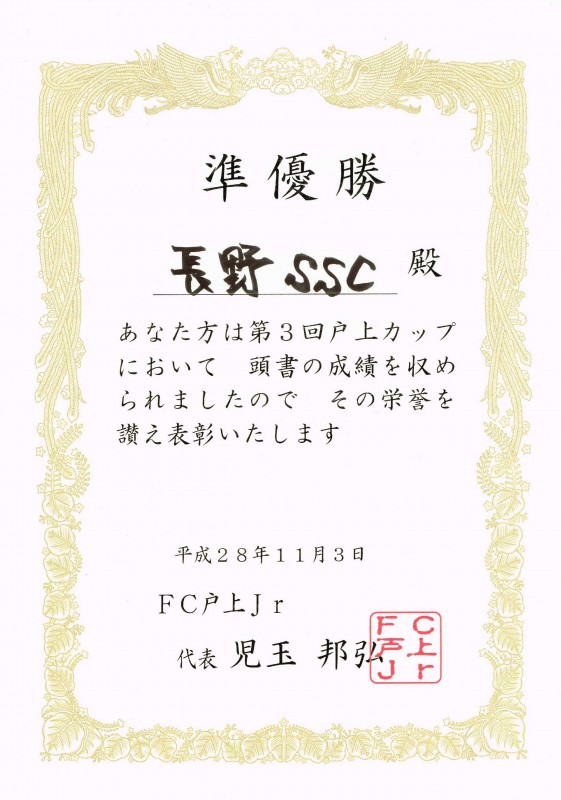 準優勝
長野SSC 殿
あなた方は第３回戸上カップ
において　頭書の成績を収め
られましたので　その栄誉を
讃え表彰いたします
平成２８年１１月３日
ＦＣ戸上Ｊｒ
代表 児玉 邦弘
ＦＣ
戸上
Ｊｒ